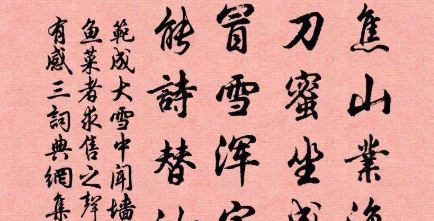 焦山業
刀蜜坐成
冒雪渾
能詩替
範成大雪中聞墻
魚菜者求售之聲
有感三詞典網集